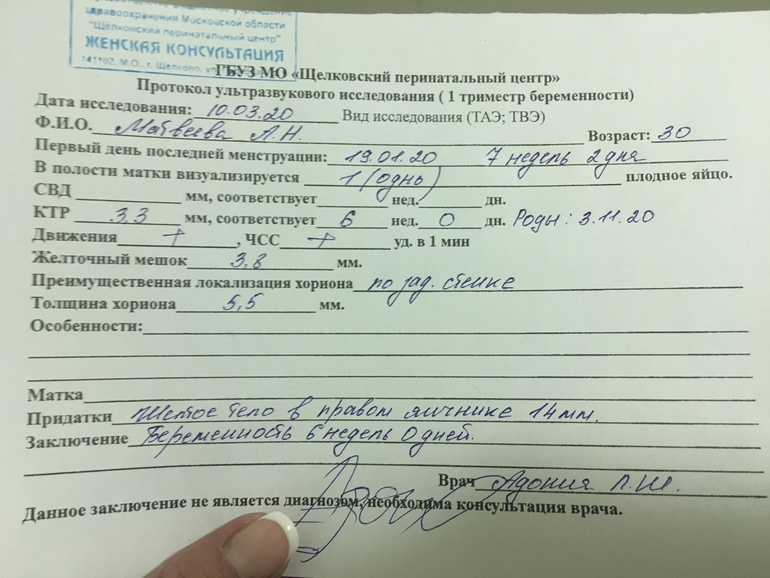 здравоохранения Московской области
"Щелковский перинатальный центр"
ЖЕНСКАЯ КОНСУЛЬТАЦИЯ
141102, М.О., г. Щелково, ул.
ГБУЗ МО «Щелковский перинатальный центр»
Протокол ультразвукового исследования ( 1 триместр беременности)
Дата исследования: 10.03.20 Вид исследования (ТАЭ; ТВЭ)
Ф.И.О. Матвеева А.Н. Возраст: 30
Первый день последней менструации: 19.01.20 7 недель 2 дня
В полости матки визуализируется 1 (однь) плодное яйцо.
СВД мм, соответствует нед. дн.
КТР 3,3 мм, соответствует 6 нед. 0 дн. Роды: 3.11.20
Движения +, ЧСС + уд. в 1 мин
Желточный мешок 3,8 мм.
Преимущественная локализация хориона по зад. стенке
Толщина хориона 5,5 мм.
Особенности:
Матка
Придатки Желтое тело в правом яичнике 14 мм.
Заключение Беременность 6 недель 0 дней.
Врач Адония Л.Ш.
Данное заключение не является диагнозом, необходима консультация врача.